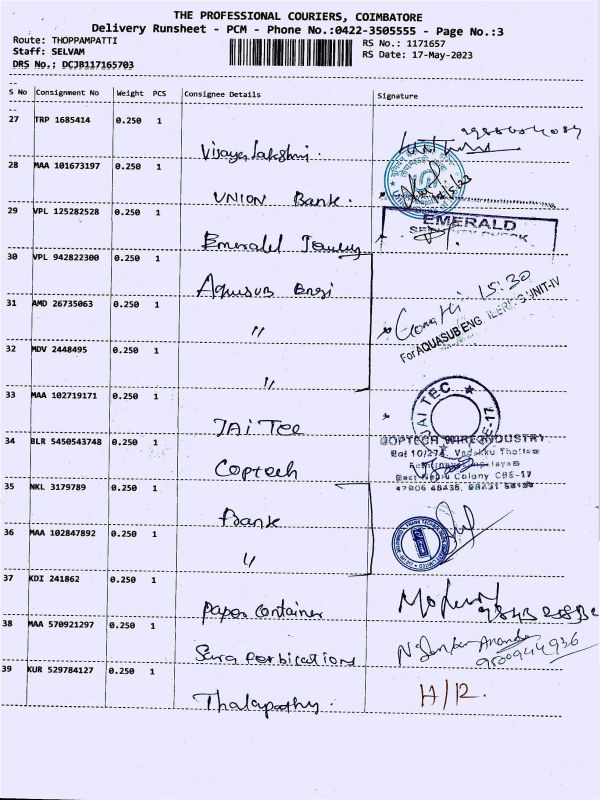 THE PROFESSIONAL COURIERS, COIMBATORE
Delivery Runsheet - PCM - Phone No.:0422-3505555 - Page No.:3
Route: THOPPAMPATTI RS No.: 1171657
Staff: SELVAM RS Date: 17-May-2023
DRS No.; DCJB117165703
S No Consignment No Weight PCS Consignee Details Signature
27 TRP 1685414 0.250 1
Vijaya lakshmi.
28 MAA 101673197 0.250 1
UNION Bank.
29 VPL 125282528 0.250 1
EMERALD
SECURITY CHECK
Emerald
30 VPL 942822300 0.250 1
Aquasub Engi
15:30
31 AMD 26735063 0.250 1
Gomathi
For AQUASUB ENG UNIT-IV
"
32 MDV 2448495 0.250 1
"
33 MAA 102719171 0.250 1
JAI TEC
JAI TEC
34 BLR 5450543748 0.250 1
COPTECH WIRE INDUSTRY
Coptech
Colony CBE-17
35 NKL 3179789 0.250 1
Bank
36 MAA 102847892 0.250 1
"
37 KDI 241862 0.250 1
paper container
38 MAA 570921297 0.250 1
9500944936
39 KUR 529784127 0.250 1
H/12.
Thalapathy.